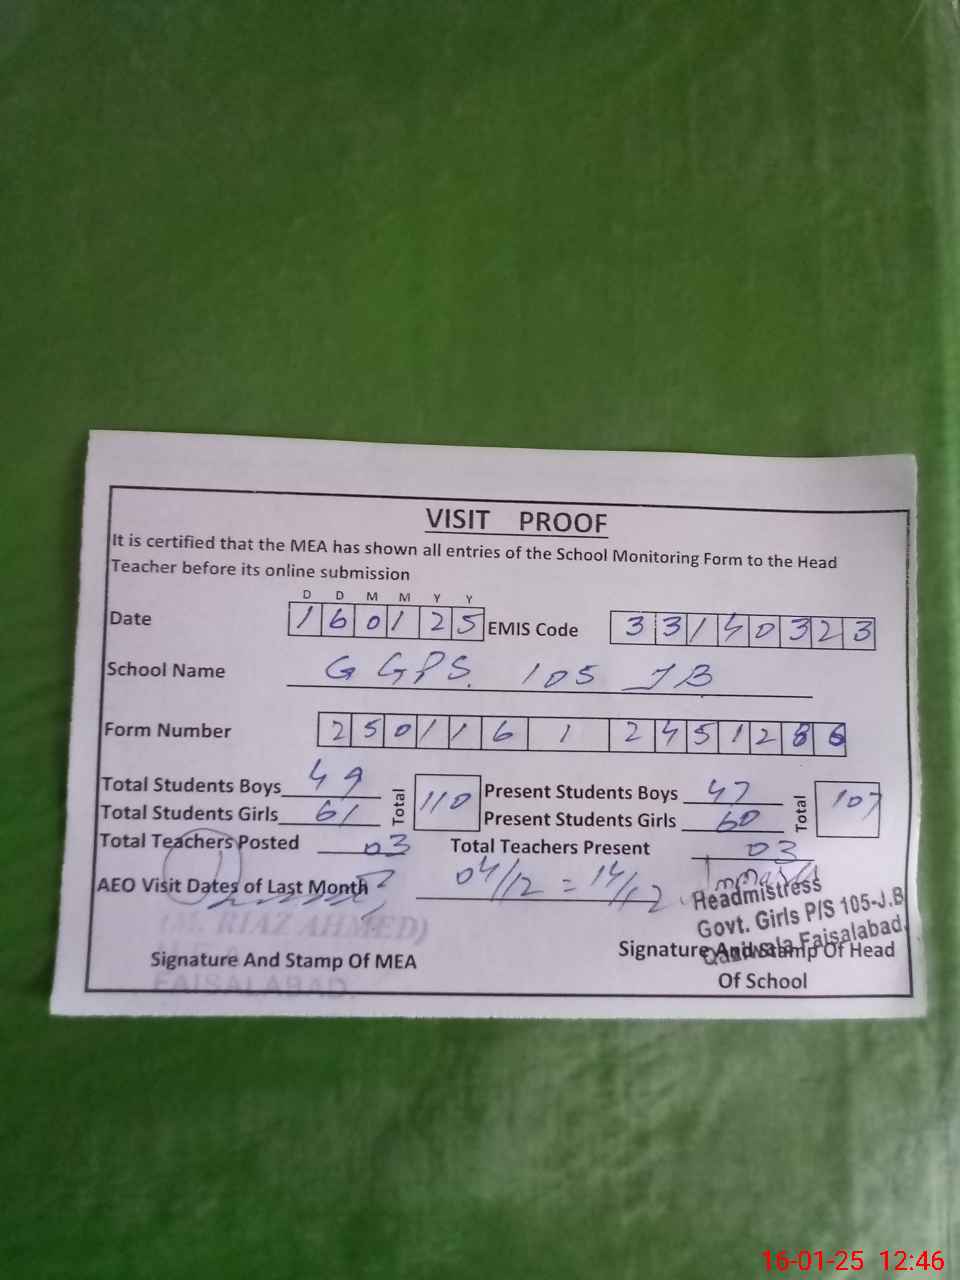 VISIT PROOF
It is certified that the MEA has shown all entries of the School Monitoring Form to the Head
Teacher before its online submission
D D M M Y Y
Date 1 6 0 1 2 5 EMIS Code 3 3 1 4 0 3 2 3
School Name G GPS. 105 JB
Form Number 2 5 0 1 1 6 1 2 4 5 1 2 8 6
Total Students Boys 49 Total 110 Present Students Boys 47 Total 107
Total Students Girls 61 Present Students Girls 60
Total Teachers Posted 03 Total Teachers Present 03
AEO Visit Dates of Last Month 04/12 = 14/12
Headmistress
Govt. Girls P/S 105-J.B
Faisalabad.
(M. RIAZ AHMED)
FAISALABAD.
Signature And Stamp Of MEA
Signature And Stamp Of Head
Of School
16-01-25 12:46